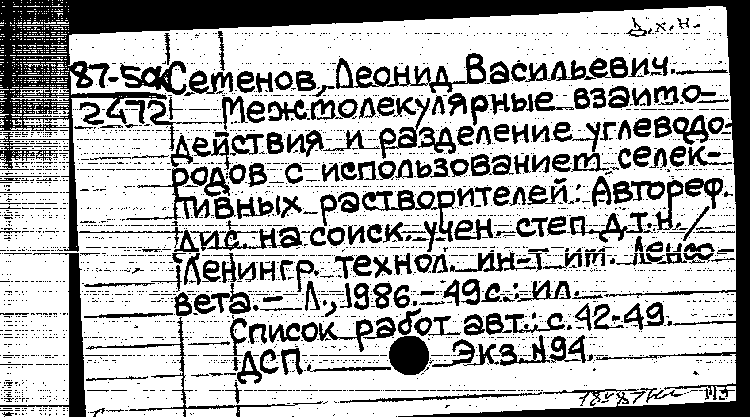 Д.х.н.
87-5ок Семенов, Леонид Васильевич.
2472 Межмолекулярные взаимо-
действия и разделение углеводо-
родов с использованием селек-
тивных растворителей: Автореф.
дис. на соиск. учен. степ. д.т.н./
Ленингр. технол. ин-т им. Ленсо-
вета.- Л., 1986.- 49с.: ил.
Список работ авт.: с.42-49.
ДСП. Экз.N94.